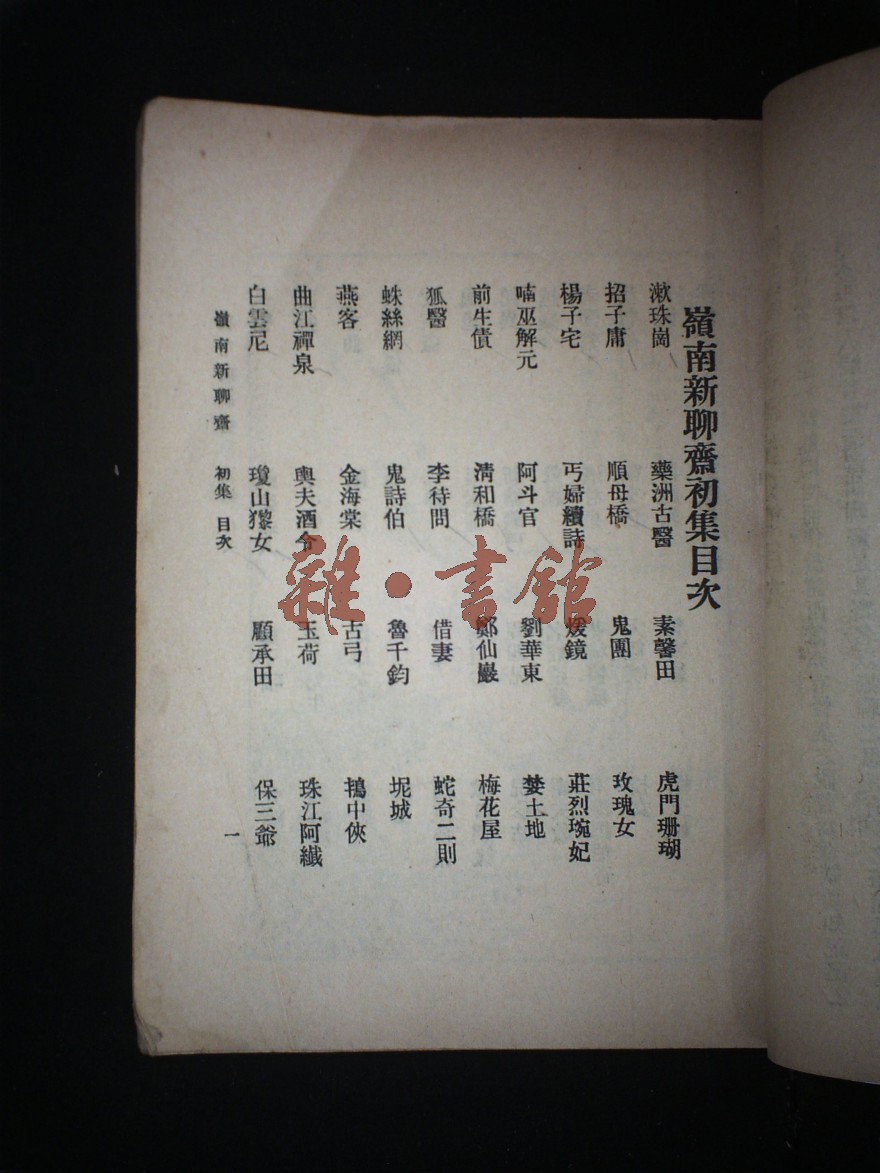 嶺南新聊齋初集目次
漱珠崗 藥洲古醫 素馨田 虎門珊瑚
招子庸 順母橋 鬼團 玫瑰女
楊子宅 丐婦續詩 鏡 莊烈琬妃
喃巫解元 阿斗官 劉華東 婪土地
前生債 清和橋 鄭仙巖 梅花屋
狐醫 李待問 借妻 蛇奇二則
蛛絲網 鬼詩伯 魯千鈞 坭城
燕客 金海棠 古弓 中俠
曲江禪泉 輿夫酒令 玉荷 珠江阿纖
白雲尼 瓊山黎女 顧承田 保三爺
嶺南新聊齋 初集 目次 一
雜·書館